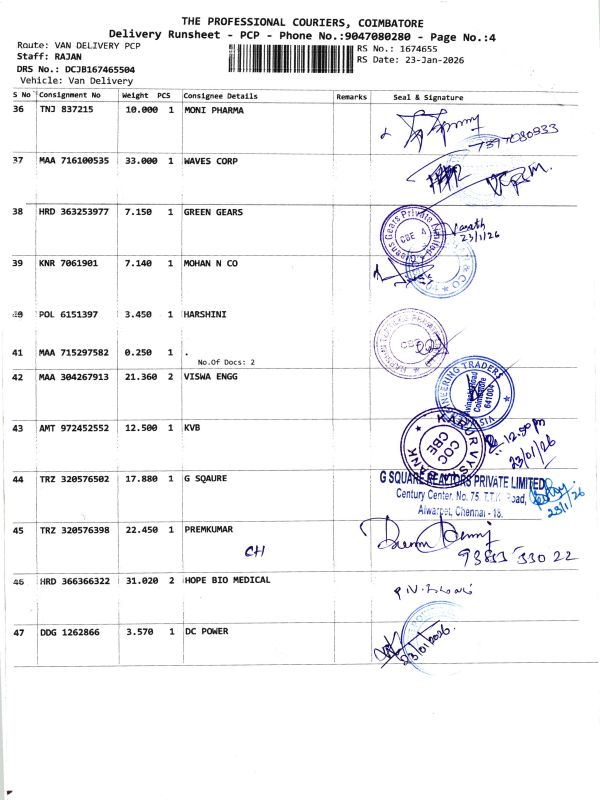 THE PROFESSIONAL COURIERS, COIMBATORE
Delivery Runsheet - PCP - Phone No.:9047080280 - Page No.:4
Route: VAN DELIVERY PCP
Staff: RAJAN
DRS No.: DCJB167465504
Vehicle: Van Delivery
RS No.: 1674655
RS Date: 23-Jan-2026
S No Consignment No Weight PCS Consignee Details Remarks Seal & Signature
36 TNJ 837215 10.000 1 MONI PHARMA
37 MAA 716100535 33.000 1 WAVES CORP
38 HRD 363253977 7.150 1 GREEN GEARS
CBE
23/1/26
39 KNR 7061901 7.140 1 MOHAN N CO
40 POL 6151397 3.450 1 HARSHINI
41 MAA 715297582 0.250 1 .
No.Of Docs: 2
42 MAA 304267913 21.360 2 VISWA ENGG
Coimbatore
641004
43 AMT 972452552 12.500 1 KVB
KARUR VYSYA BANK
COC
CBE
12:50 pm
23/01/26
44 TRZ 320576502 17.880 1 G SQAURE
G SQUARE REALTORS PRIVATE LIMITED
Century Center, No. 75, T.T.K. Road,
Alwarpet, Chennai - 18.
23/1/26
45 TRZ 320576398 22.450 1 PREMKUMAR
CH
46 HRD 366366322 31.020 2 HOPE BIO MEDICAL
47 DDG 1262866 3.570 1 DC POWER
23/01/2026